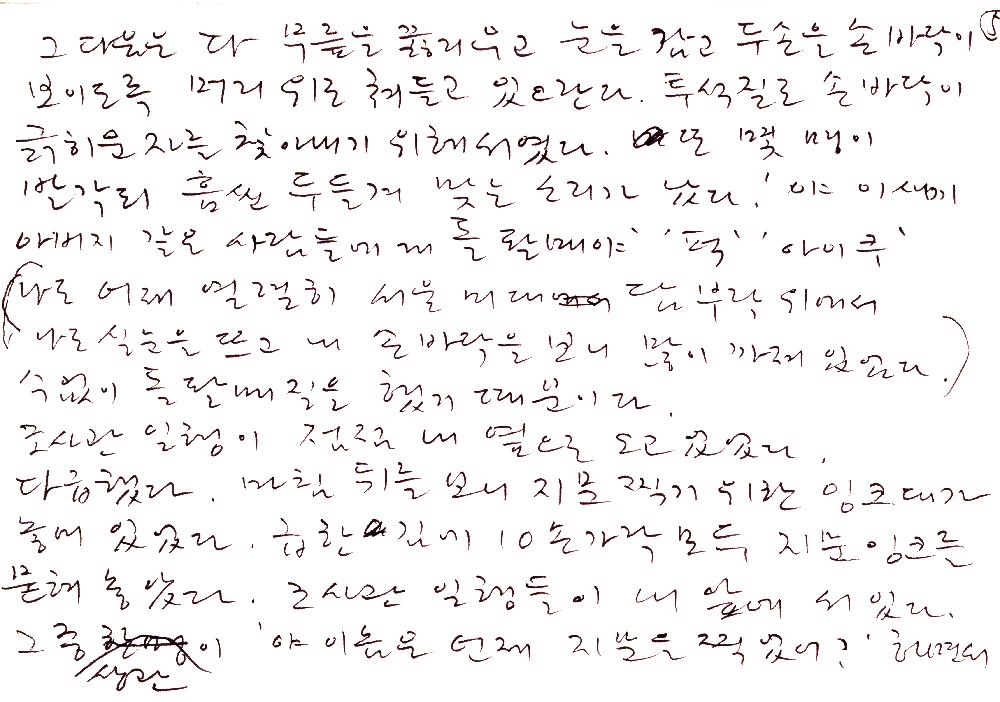 ⑤
그 다음은 다 무릎을 꿇리우고 눈을 감고 두손을 손바닥이
보이도록 머리 위로 쳐들고 있으란다. 투석질로 손바닥이
긁히운 자를 찾아내기 위해서였다. 또 몇 명이
발각되 흠씬 두들겨 맞는 소리가 났다. '야 이새끼
아버지 같은 사람들에게 돌 팔매야' '퍽' '아이쿠'
(나도 어제 열렬히 서울 미대 담 부락 위에서
나도 실눈을 뜨고 내 손바닥을 보니 많이 까져 있었다.)
수없이 돌팔매질을 했기 때문이다.
조사관 일행이 점점 내 옆으로 오고있었다.
다급했다. 마침 뒤를 보니 지문 찍기 위한 잉크대가
놓여 있었다. 급한 김에 10손가락 모두 지문잉크를
묻혀 놓았다. 조사관 일행들이 내 앞에 서 있다.
그중 상관이 '야 이놈은 언제 지문을 찍었어?' 하면서